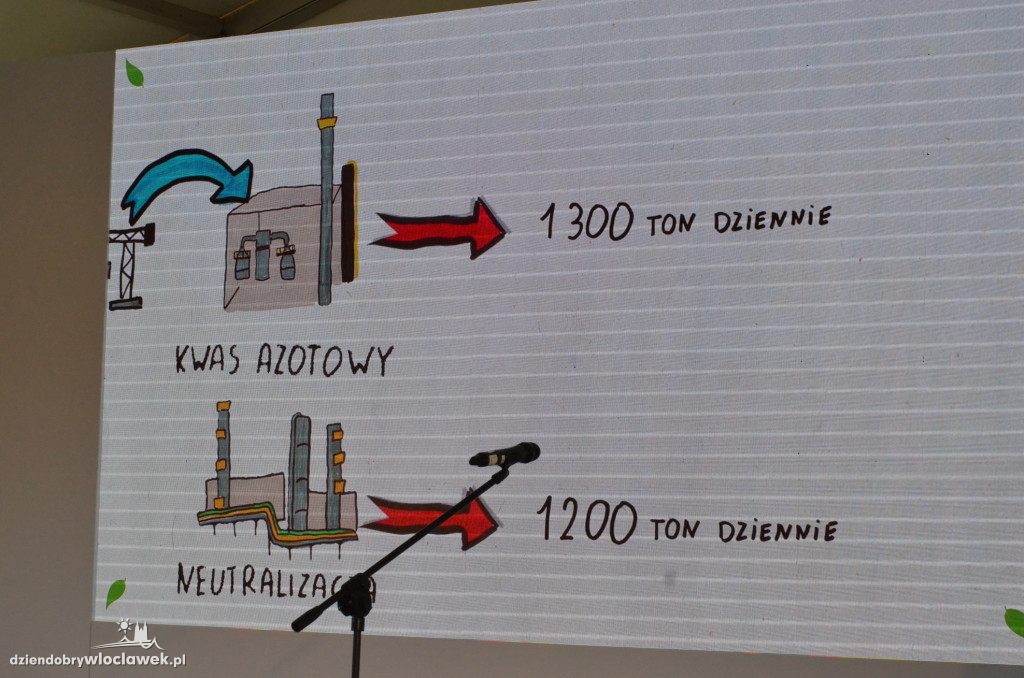 1300 TON DZIENNIE
KWAS AZOTOWY
1200 TON DZIENNIE
NEUTRALIZACJA
dziendobrywloclawek.pl